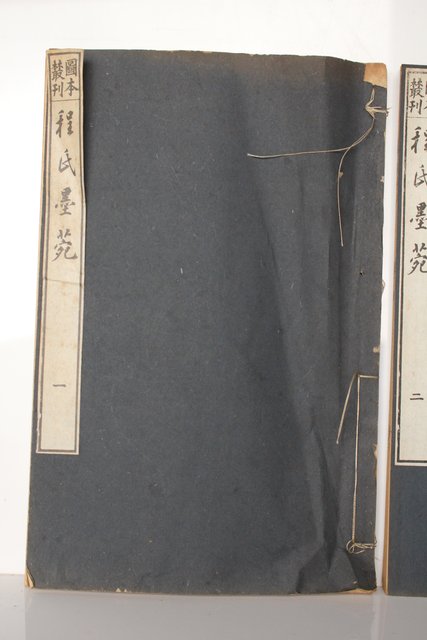 圖本
叢刊
程氏墨菀
一
叢刊
程氏墨菀
二